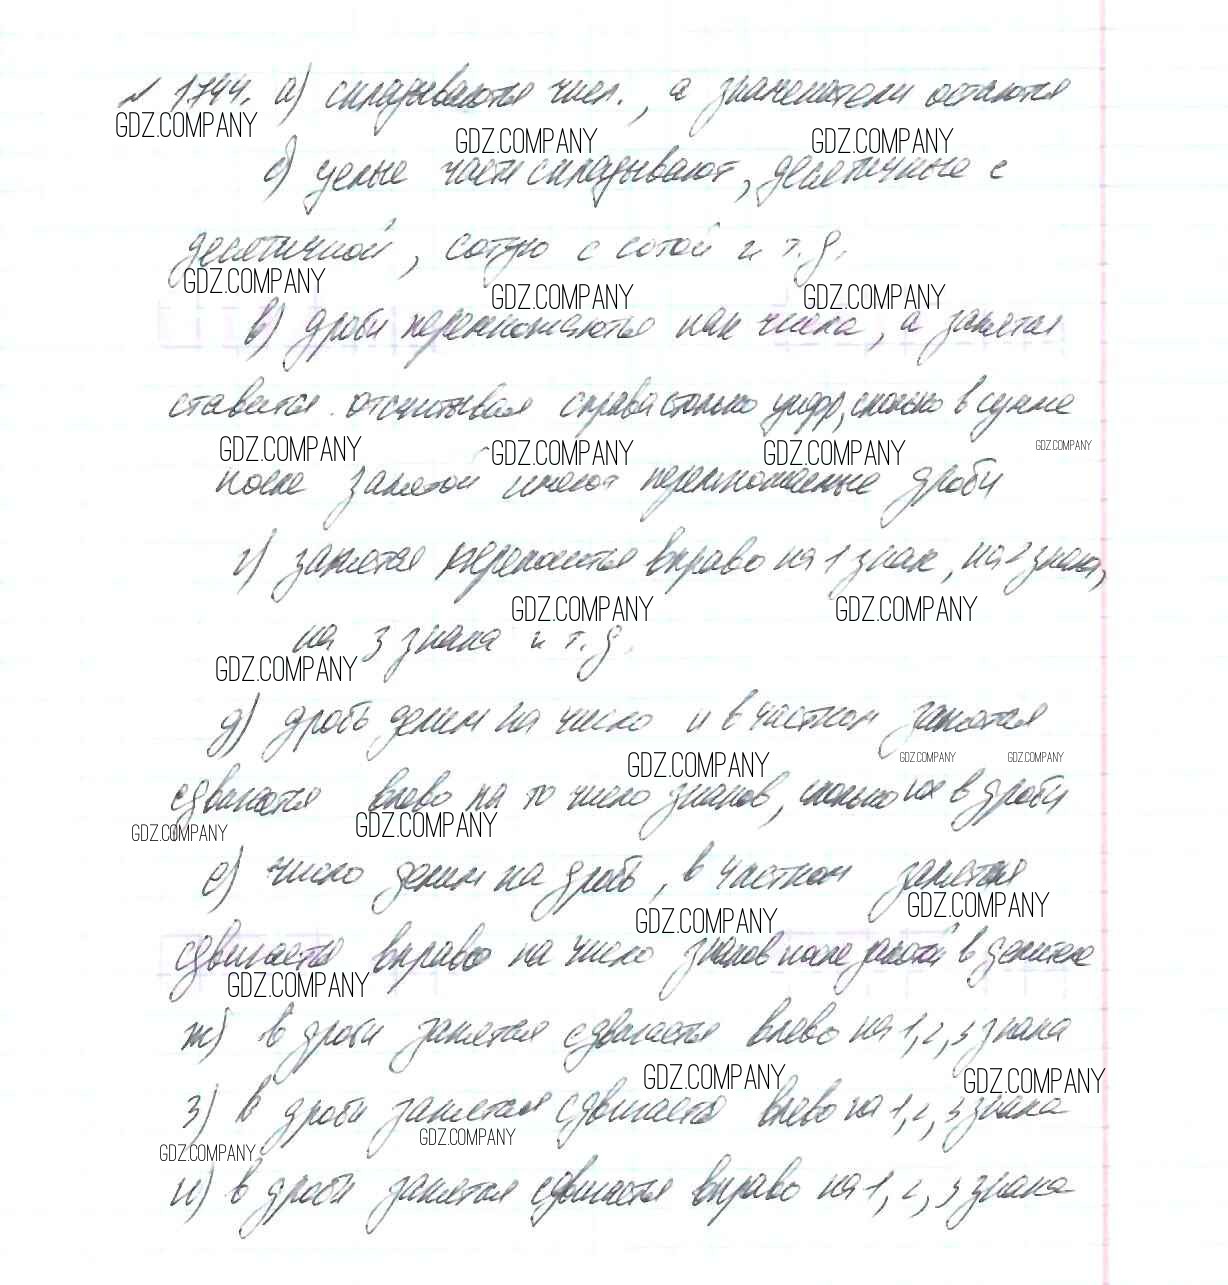 № 1744. а) складываются числ., а знаменатели остаются
GDZ.COMPANY GDZ.COMPANY GDZ.COMPANY
б) целые части складывают, десятичные с
десятичной, сотую с сотой и т.д.
GDZ.COMPANY GDZ.COMPANY GDZ.COMPANY
в) дроби перемножаются как числа, а запятая
ставится отсчитывая справа столько цифр, сколько в сумме
GDZ.COMPANY GDZ.COMPANY GDZ.COMPANY GDZ.COMPANY
после запятой имеют перемноженные дроби
г) запятая переносится вправо на 1 знак, на 2 знака,
GDZ.COMPANY GDZ.COMPANY
на 3 знака и т.д.
GDZ.COMPANY
д) дробь делим на число и в частном запятая
GDZ.COMPANY GDZ.COMPANY GDZ.COMPANY
сдвигается влево на то число знаков, сколько их в дроби
GDZ.COMPANY GDZ.COMPANY
е) число делим на дробь, в частном запятая
GDZ.COMPANY GDZ.COMPANY
сдвигается вправо на число знаков после запятой в делителе
GDZ.COMPANY
ж) в дроби запятая сдвигается влево на 1, 2, 3 знака
GDZ.COMPANY GDZ.COMPANY
з) в дроби запятая сдвигается влево на 1, 2, 3 знака
GDZ.COMPANY GDZ.COMPANY
и) в дроби запятая сдвигается вправо на 1, 2, 3 знака